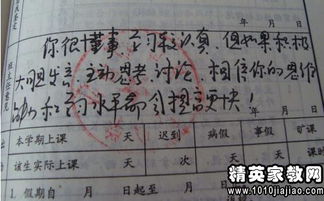 年 月 日
你很懂事,学习较认真,但如果积极
大胆发言、主动思考、讨论,相信你的思维
能力和学习水平会提高更快!
年 月 日
本学期上课 天 迟到 病假 事假 旷课
该生实际上课 天 次 天 天 课时
1. 假期自 月 日起至 月 日
精英家教网
www.1010jiajiao.com